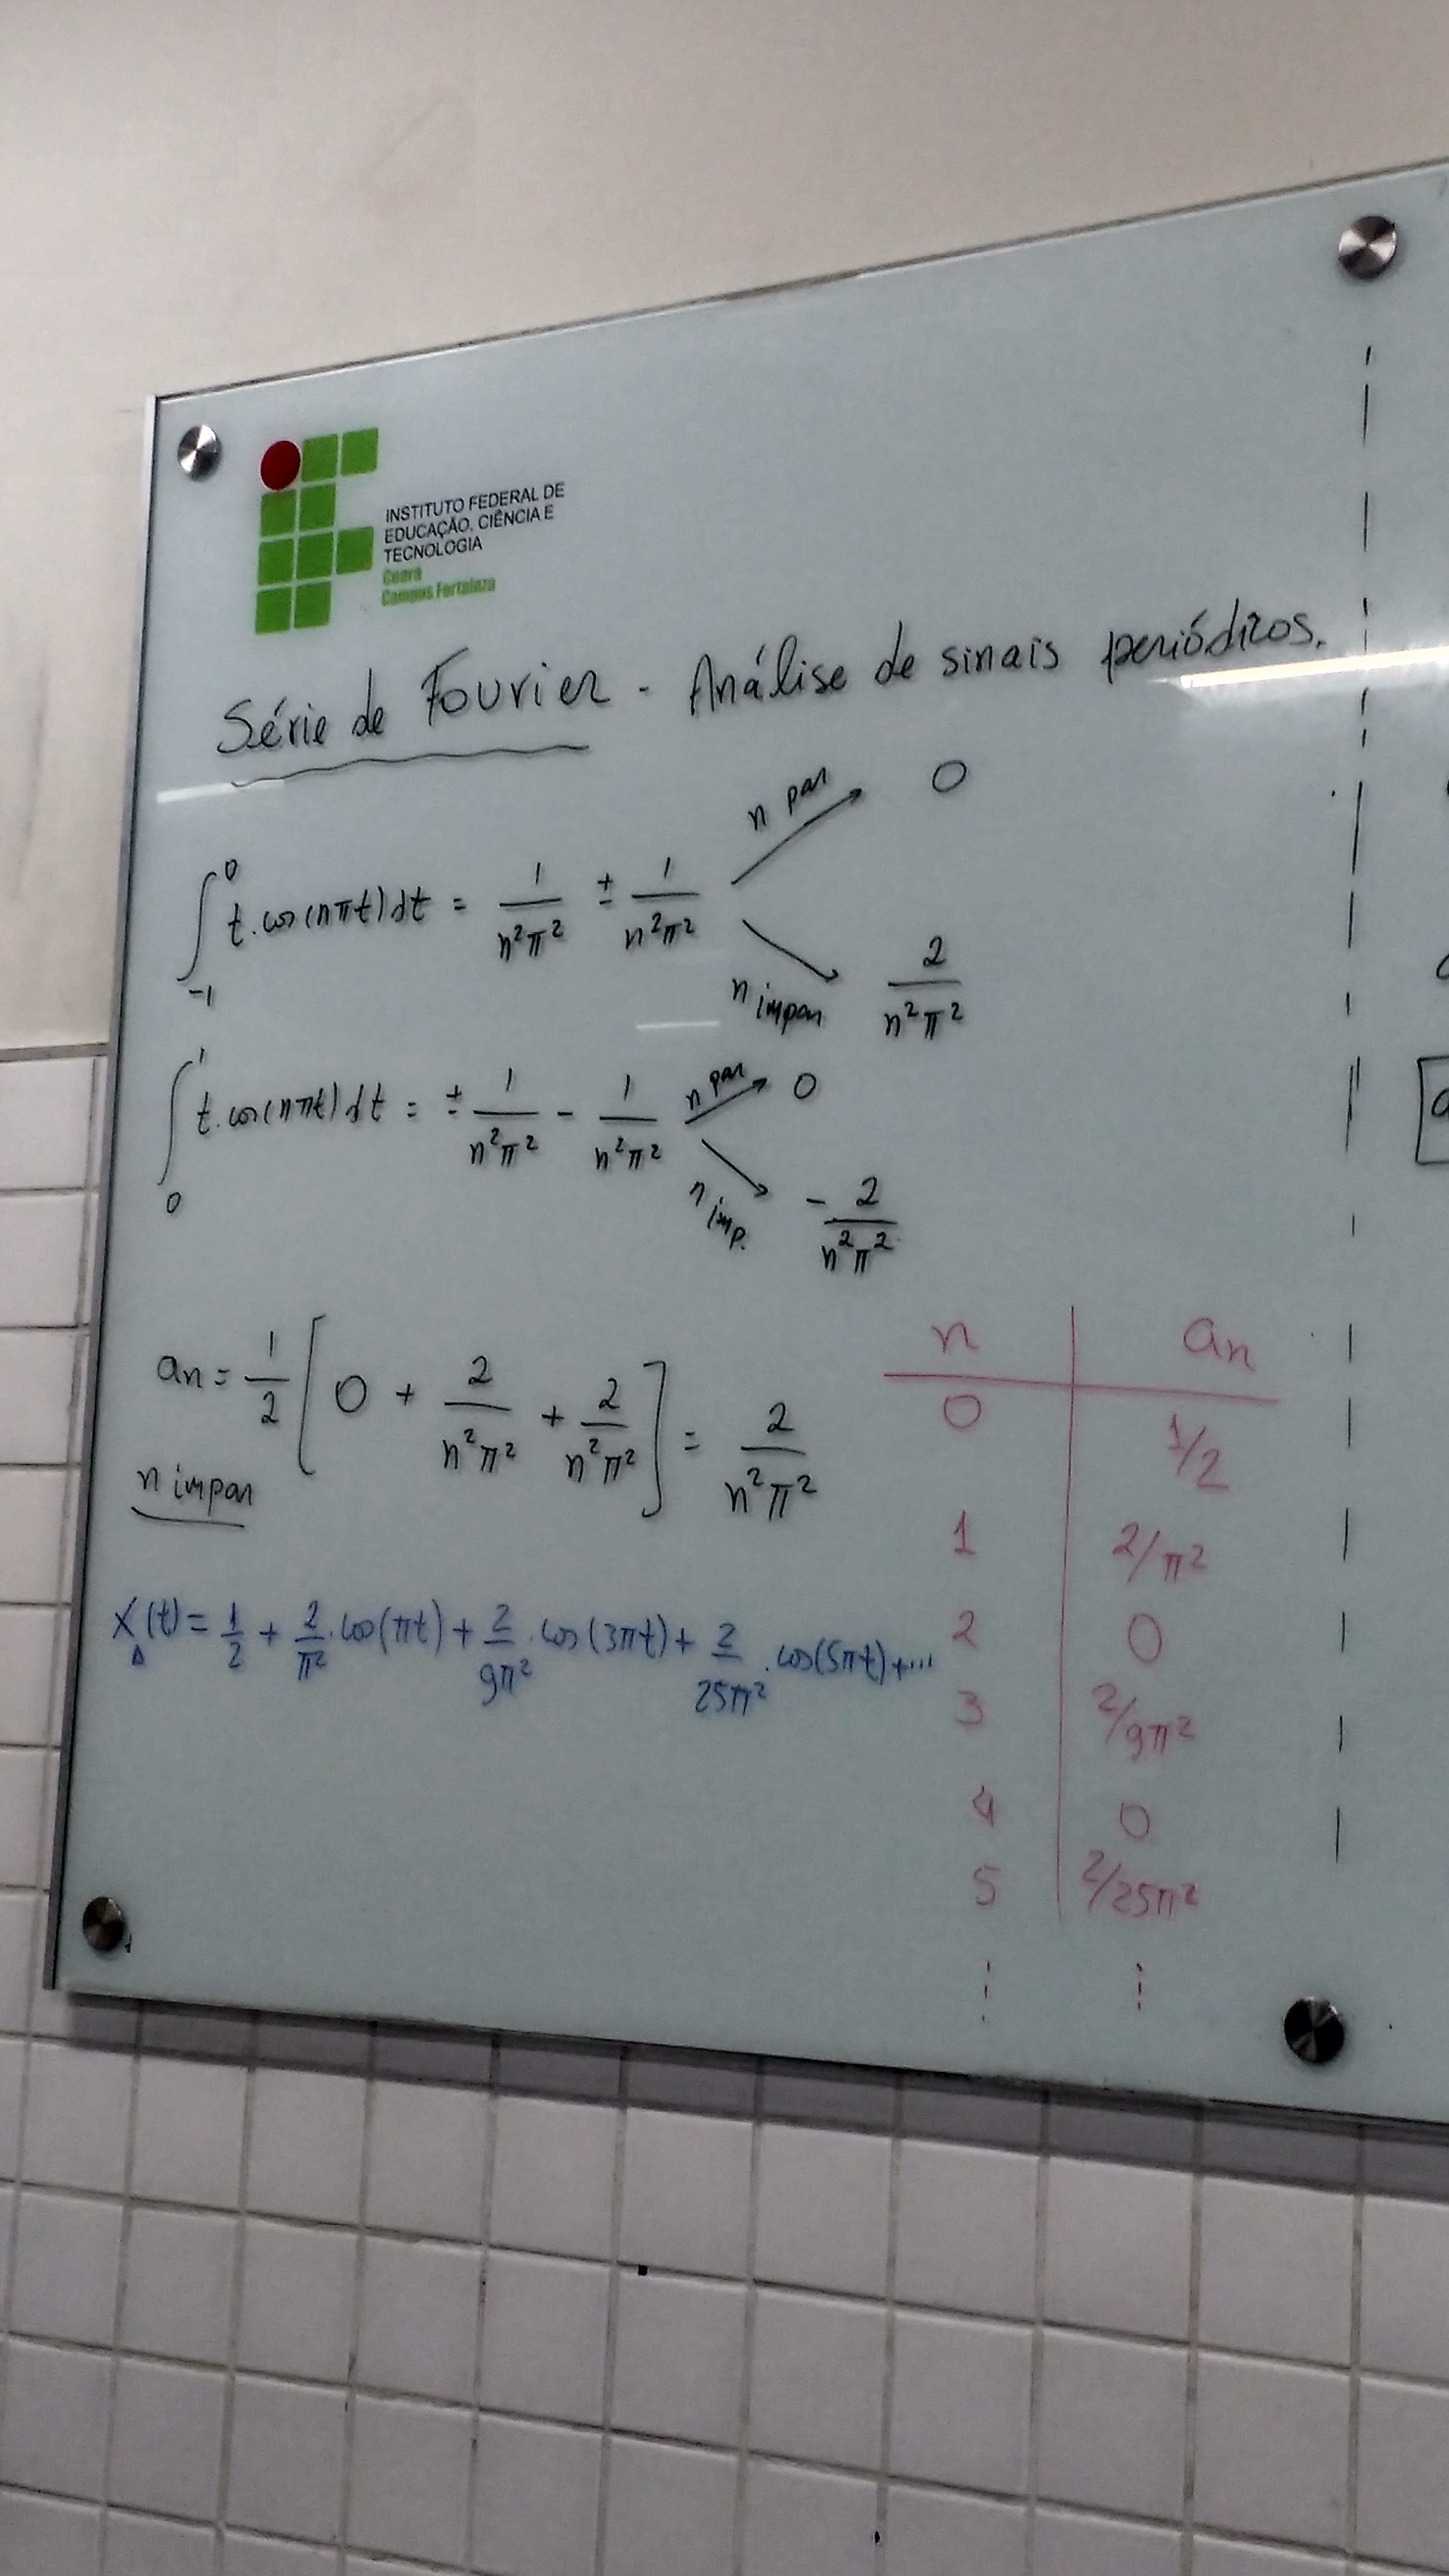 INSTITUTO FEDERAL DE
EDUCAÇÃO, CIÊNCIA E
TECNOLOGIA
Ceará
Campus Fortaleza
Série de Fourier - Análise de sinais periódicos.
∫_{-1}^{0} t.cos(nπt)dt = 1/n²π² ± 1/n²π²
n par → 0
n impar → 2/n²π²
∫_{0}^{1} t.cos(nπt)dt = ± 1/n²π² - 1/n²π²
n par → 0
n imp. → - 2/n²π²
an = 1/2 [0 + 2/n²π² + 2/n²π²] = 2/n²π²
n impar
X_Δ(t) = 1/2 + 2/π².cos(πt) + 2/9π².cos(3πt) + 2/25π².cos(5πt) + ...
n an
0 1/2
1 2/π²
2 0
3 2/9π²
4 0
5 2/25π²
⋮ ⋮